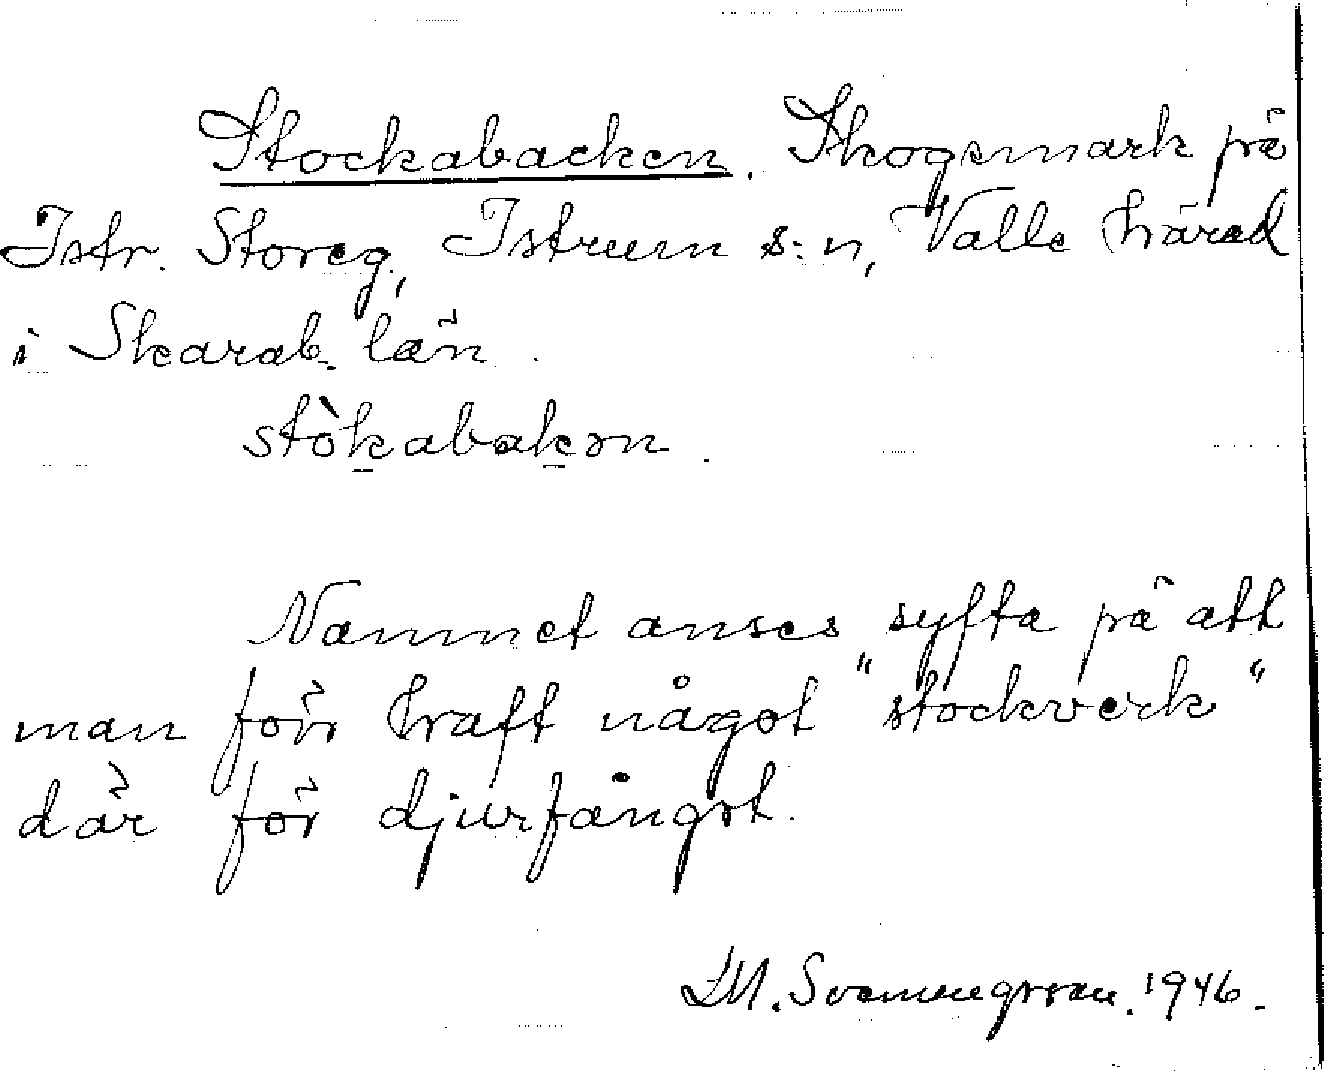 Stockabacken. Skogsmark på
Istr. Storeg., Istrum s:n, Valle härad
i Skarab. län.
stòkabakɘn.
Namnet anses syfta på att
man förr haft något "stockverk"
där för djurfångst.
LM. Svenungsson. 1946.